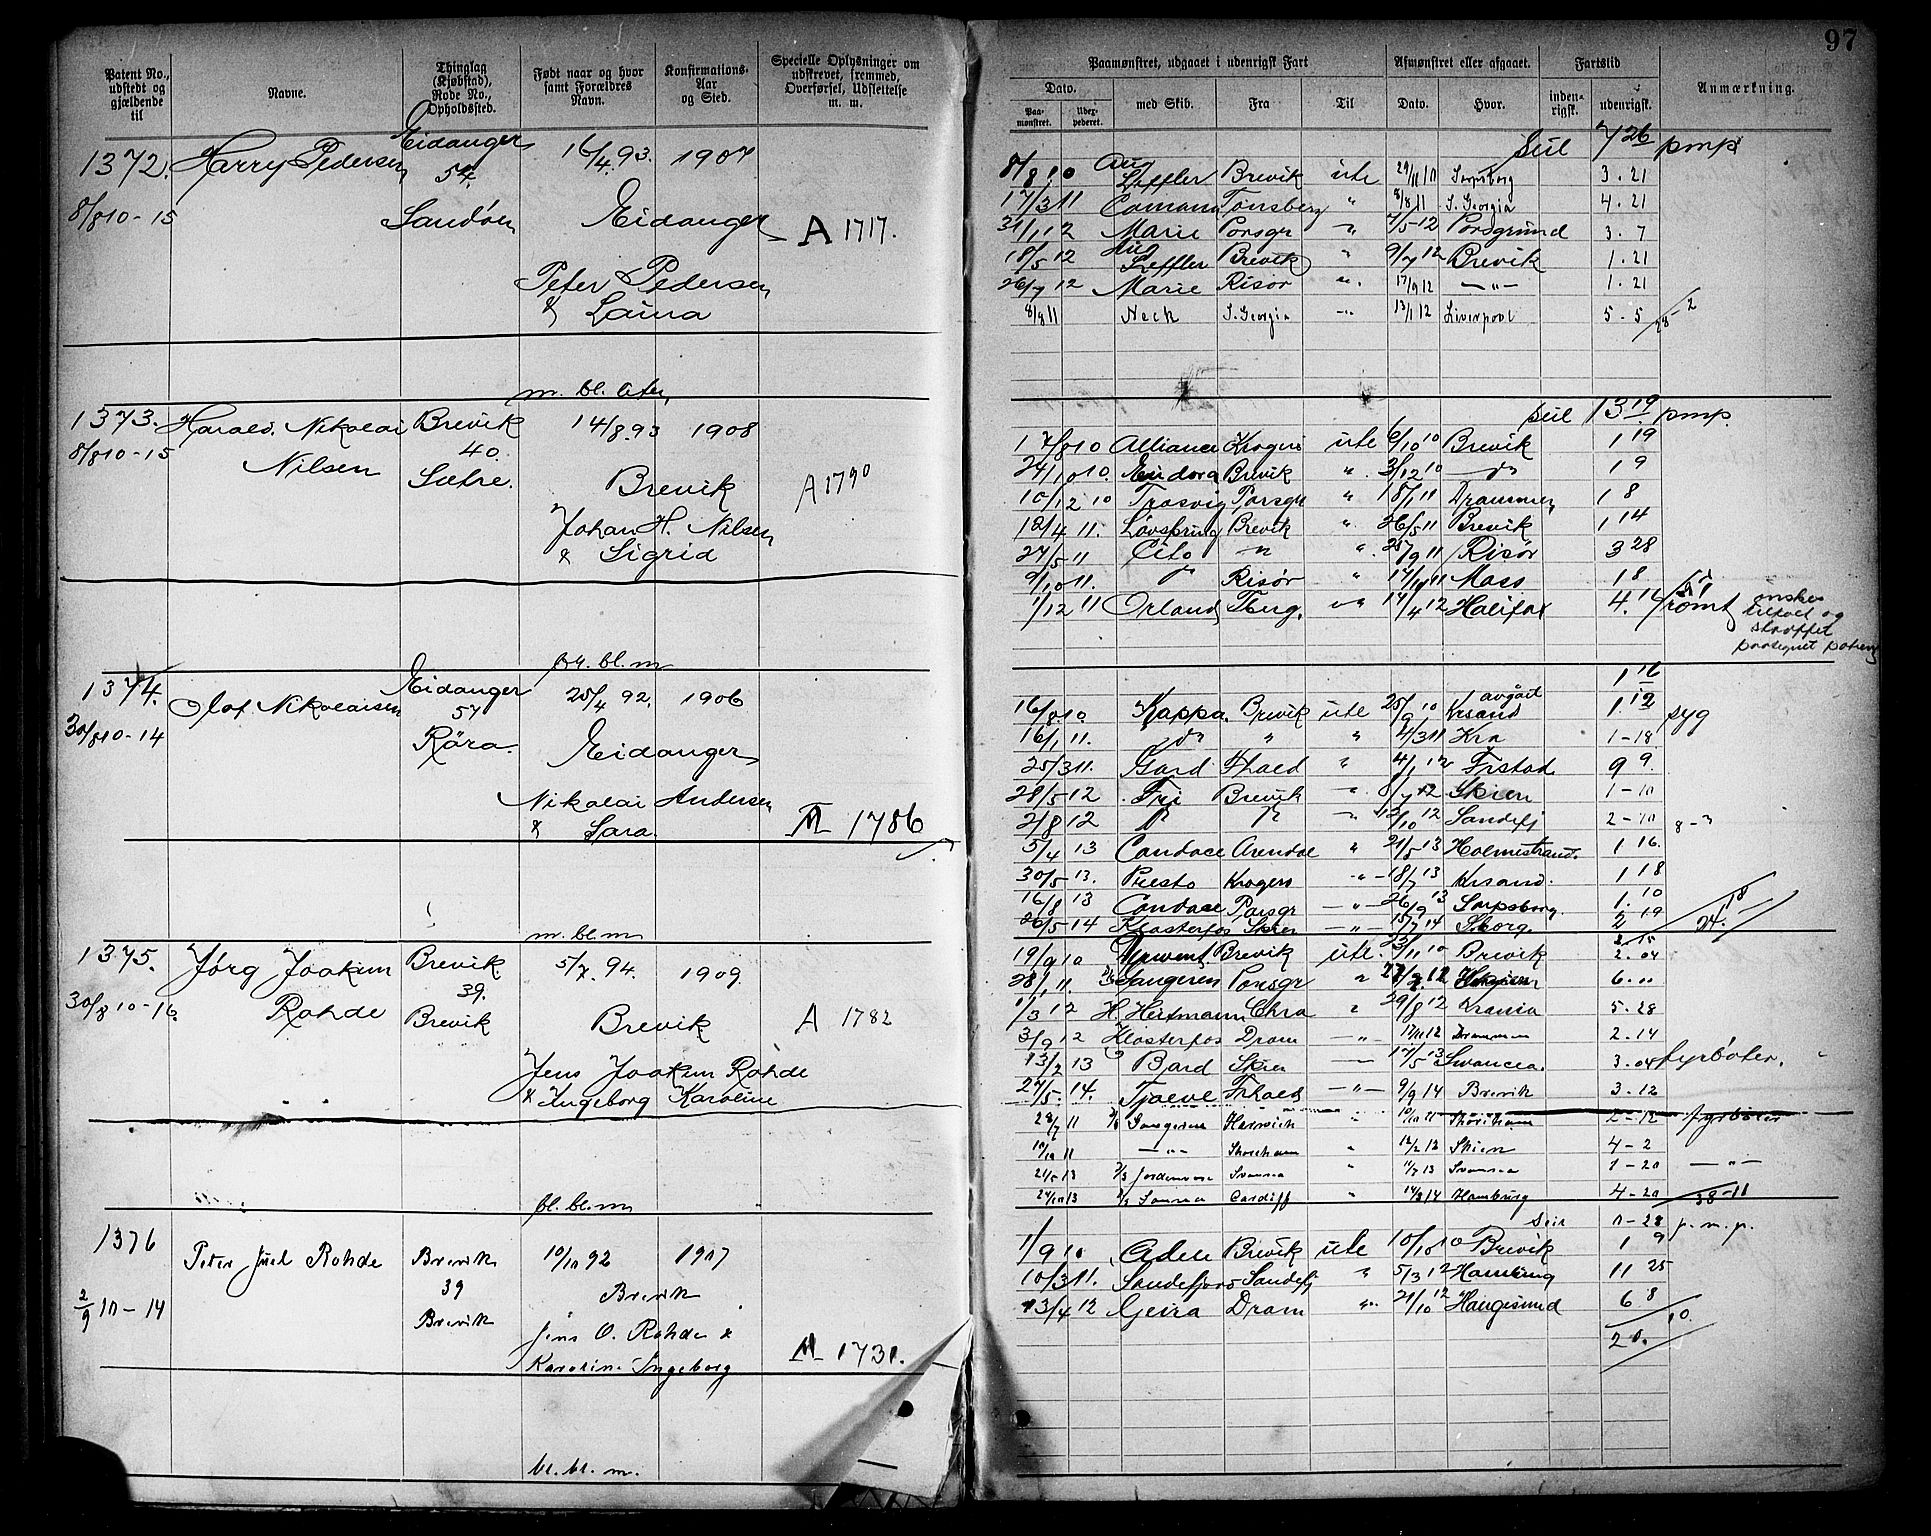 97
Patent No., udstedt og gjældende til
Navne.
Thinglag (Kjøbstad), Rode No., Opholdssted.
Født naar og hvor samt Forældres Navn.
Konfirmations- Aar og Sted.
Specielle Oplysninger om udskrevet, fremmed, Overførsel, Udslettelse m. m.
Paamønstret, udgaaet i udenrigsk Fart
Afmønstret eller afgaaet.
Fartstid
Anmærkning.
Dato.
Paa- mønstret.
Udex- pederet.
med Skib.
Fra
Til
Dato.
Hvor.
inden- rigsk.
udenrigsk.
1372. Harry Pedersen Eidanger 16/4 93. 1907
54.
8/8 10-15 Sandøen Eidanger A 1717.
Peter Pedersen
& Laura
m. bl. liten
Seil 7 26 pmp
8/8 10 Aug Leffler Brevik ute 29/11 10 Sarpsborg 3.21
17/3 11 Tønsberg " 8/8 11 S. Georgia 4.21
31/1 12 Marie Porsgr " 7/5-12 Porsgrund 3.7
18/5 12 Aug Leffler Brevik " 9/7 12 Brevik 1.21
26/7 12 Marie Risør " 17/9 12 —"— 1.21
8/8 11 Neck S. Georgia —"— 13/1 12 Liverpool 5-5
28-2
1373. Harald Nikolai Brevik 14/8.93 1908
8/8 10-15 Nilsen 40. Brevik A 1790
Sætre.
Johan H. Nilsen
& Sigrid
br. bl. m
Seil 13 19 pmp.
17/8 10 Alliance Kragerø ute 6/10 10 Brevik 1 19
24/10 10. Eudora Brevik " 3/12 10 — 1 9
10/12 10 Trosvig Porsgr " 18/1 11 Drammen 1 8
12/4 11. Løvspring Brevik " 26/5 11 Brevik 1 14
27/5 11 Cito " " 25/9 11 Risør 3 28
9/10 11. Risør " 17/11 11 Moss 1 8
1/12 11 Orland Tbrg. " 14/4 12 Halifax 4.14 rømt
ønskes
tilholt og
straffet
1374. Olaf Nikolaisen Eidanger 25/4 92. 1906
57
30/8 10-14 Røra. Eidanger
Nikolai Andersen
& Sara.
M 1786
m. bl. m
1 16
16/9 10 Kappa. Brevik ute 25/9 10 avgåat Krsand 1.12 syg
16/1 11. " " 4/3 11 Kra 1-18
25/3 11. Gard Fhald " 4/1 12 Frstad 9 9.
28/5 12 Fri Brevik " 8/7 12 Skien 1-10
2/8 12 12/10 12 Sandefj 2-10
8-7
5/4 13 Candace Arendal " 21/5 13 Holmestrand. 1 16.
30/5 13. Presto Kragerø " 18/7 13 Krsand. 1 18
16/8 13 Candace Porsgr —"— 26/9 13 Sarpsborg. 1.10
26/5-14 Klosterfos Skien —"— 15/7 14 Sborg. 2 19
1375. Jørg Joakim Brevik 5/7. 94. 1909
39.
30/8 10-16. Rohde Brevik Brevik A 1782
Jens Joakim Rohde
& Ingeborg Karoline
bl. bl. m
19/9 10 Brevik ute. 23/11 10 Brevik 2.04
28/1 11. Sangeren Porsgr " 6.00
1/3 12 H. Hertmann Chra " 29/8 12 Krania 5.28
3/9 12 Klosterfos Dram —"— 17/11 12 Drammen 2.14
13/2 13 Bjard Skien — 17/5 13 Swancea. 3.04 fyrbøter.
27/5. 14. Tjaeve Frhald —"— 9/9 14 Brevik 3.12
23/7 11 Sangeren Harwich " 10/10 11 Shoreham 2-12 fyrbøter
10/10 11 —"— Shoreham " 12/2 12 Skien 4-2
21/5 13 Swansea " 11/7 13 Swansea 1-20 —"—
24/10 13 Cardiff " 14/3 14 Hamburg 4-20 38-11
1376 Peter Juel Rohde Brevik 10/10 92 1907
39 Brevik
2/9 10-14 Brevik
Jens O. Rohde &
Karoline Ingeborg M 1731.
br. bl. m.
Seil 0-28 p.m.p.
1/9 10 Aden Brevik ute 10/10 10 Brevik 1 9
10/3 11. Sandefjord Sandefj " 5/3 12 Hamburg 11 25
13/4 12 Geira Dram " 21/10 12 Haugesund 6 8
20.10.